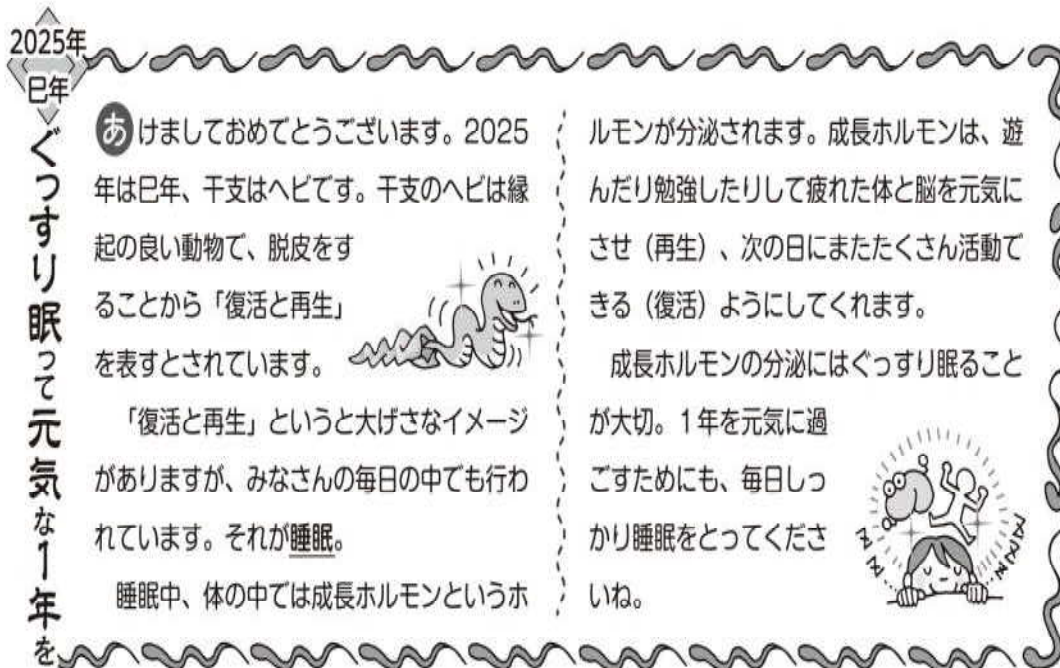 2025年
巳年
ぐっすり眠って元気な1年を
あけましておめでとうございます。2025
年は巳年、干支はヘビです。干支のヘビは縁
起の良い動物で、脱皮をす
ることから「復活と再生」
を表すとされています。
「復活と再生」というと大げさなイメージ
がありますが、みなさんの毎日の中でも行わ
れています。それが睡眠。
睡眠中、体の中では成長ホルモンというホ
ルモンが分泌されます。成長ホルモンは、遊
んだり勉強したりして疲れた体と脳を元気に
させ（再生）、次の日にまたたくさん活動で
きる（復活）ようにしてくれます。
成長ホルモンの分泌にはぐっすり眠ること
が大切。1年を元気に過
ごすためにも、毎日しっ
かり睡眠をとってくださ
いね。
ZZZ
ZZZ